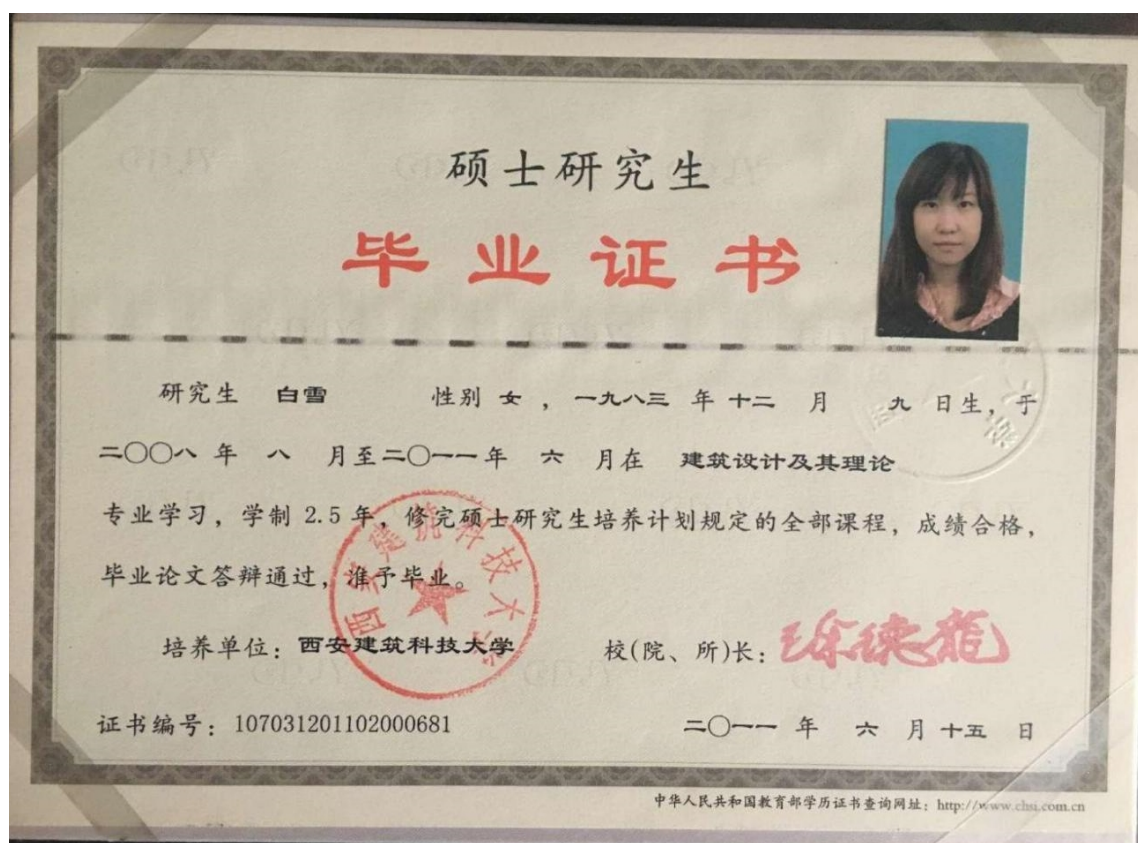 硕士研究生
毕业证书
研究生 白雪 性别 女 , 一九八三 年 十二 月 九 日生, 于
二〇〇八 年 八 月至二〇一一年 六 月在 建筑设计及其理论
专业学习, 学制 2.5 年, 修完硕士研究生培养计划规定的全部课程, 成绩合格,
毕业论文答辩通过, 准予毕业。
西安建筑科技大学
培养单位: 西安建筑科技大学 校(院、所)长: 徐德龙
证书编号: 107031201102000681 二〇一一 年 六 月 十五 日
中华人民共和国教育部学历证书查询网址: http://www.chsi.com.cn